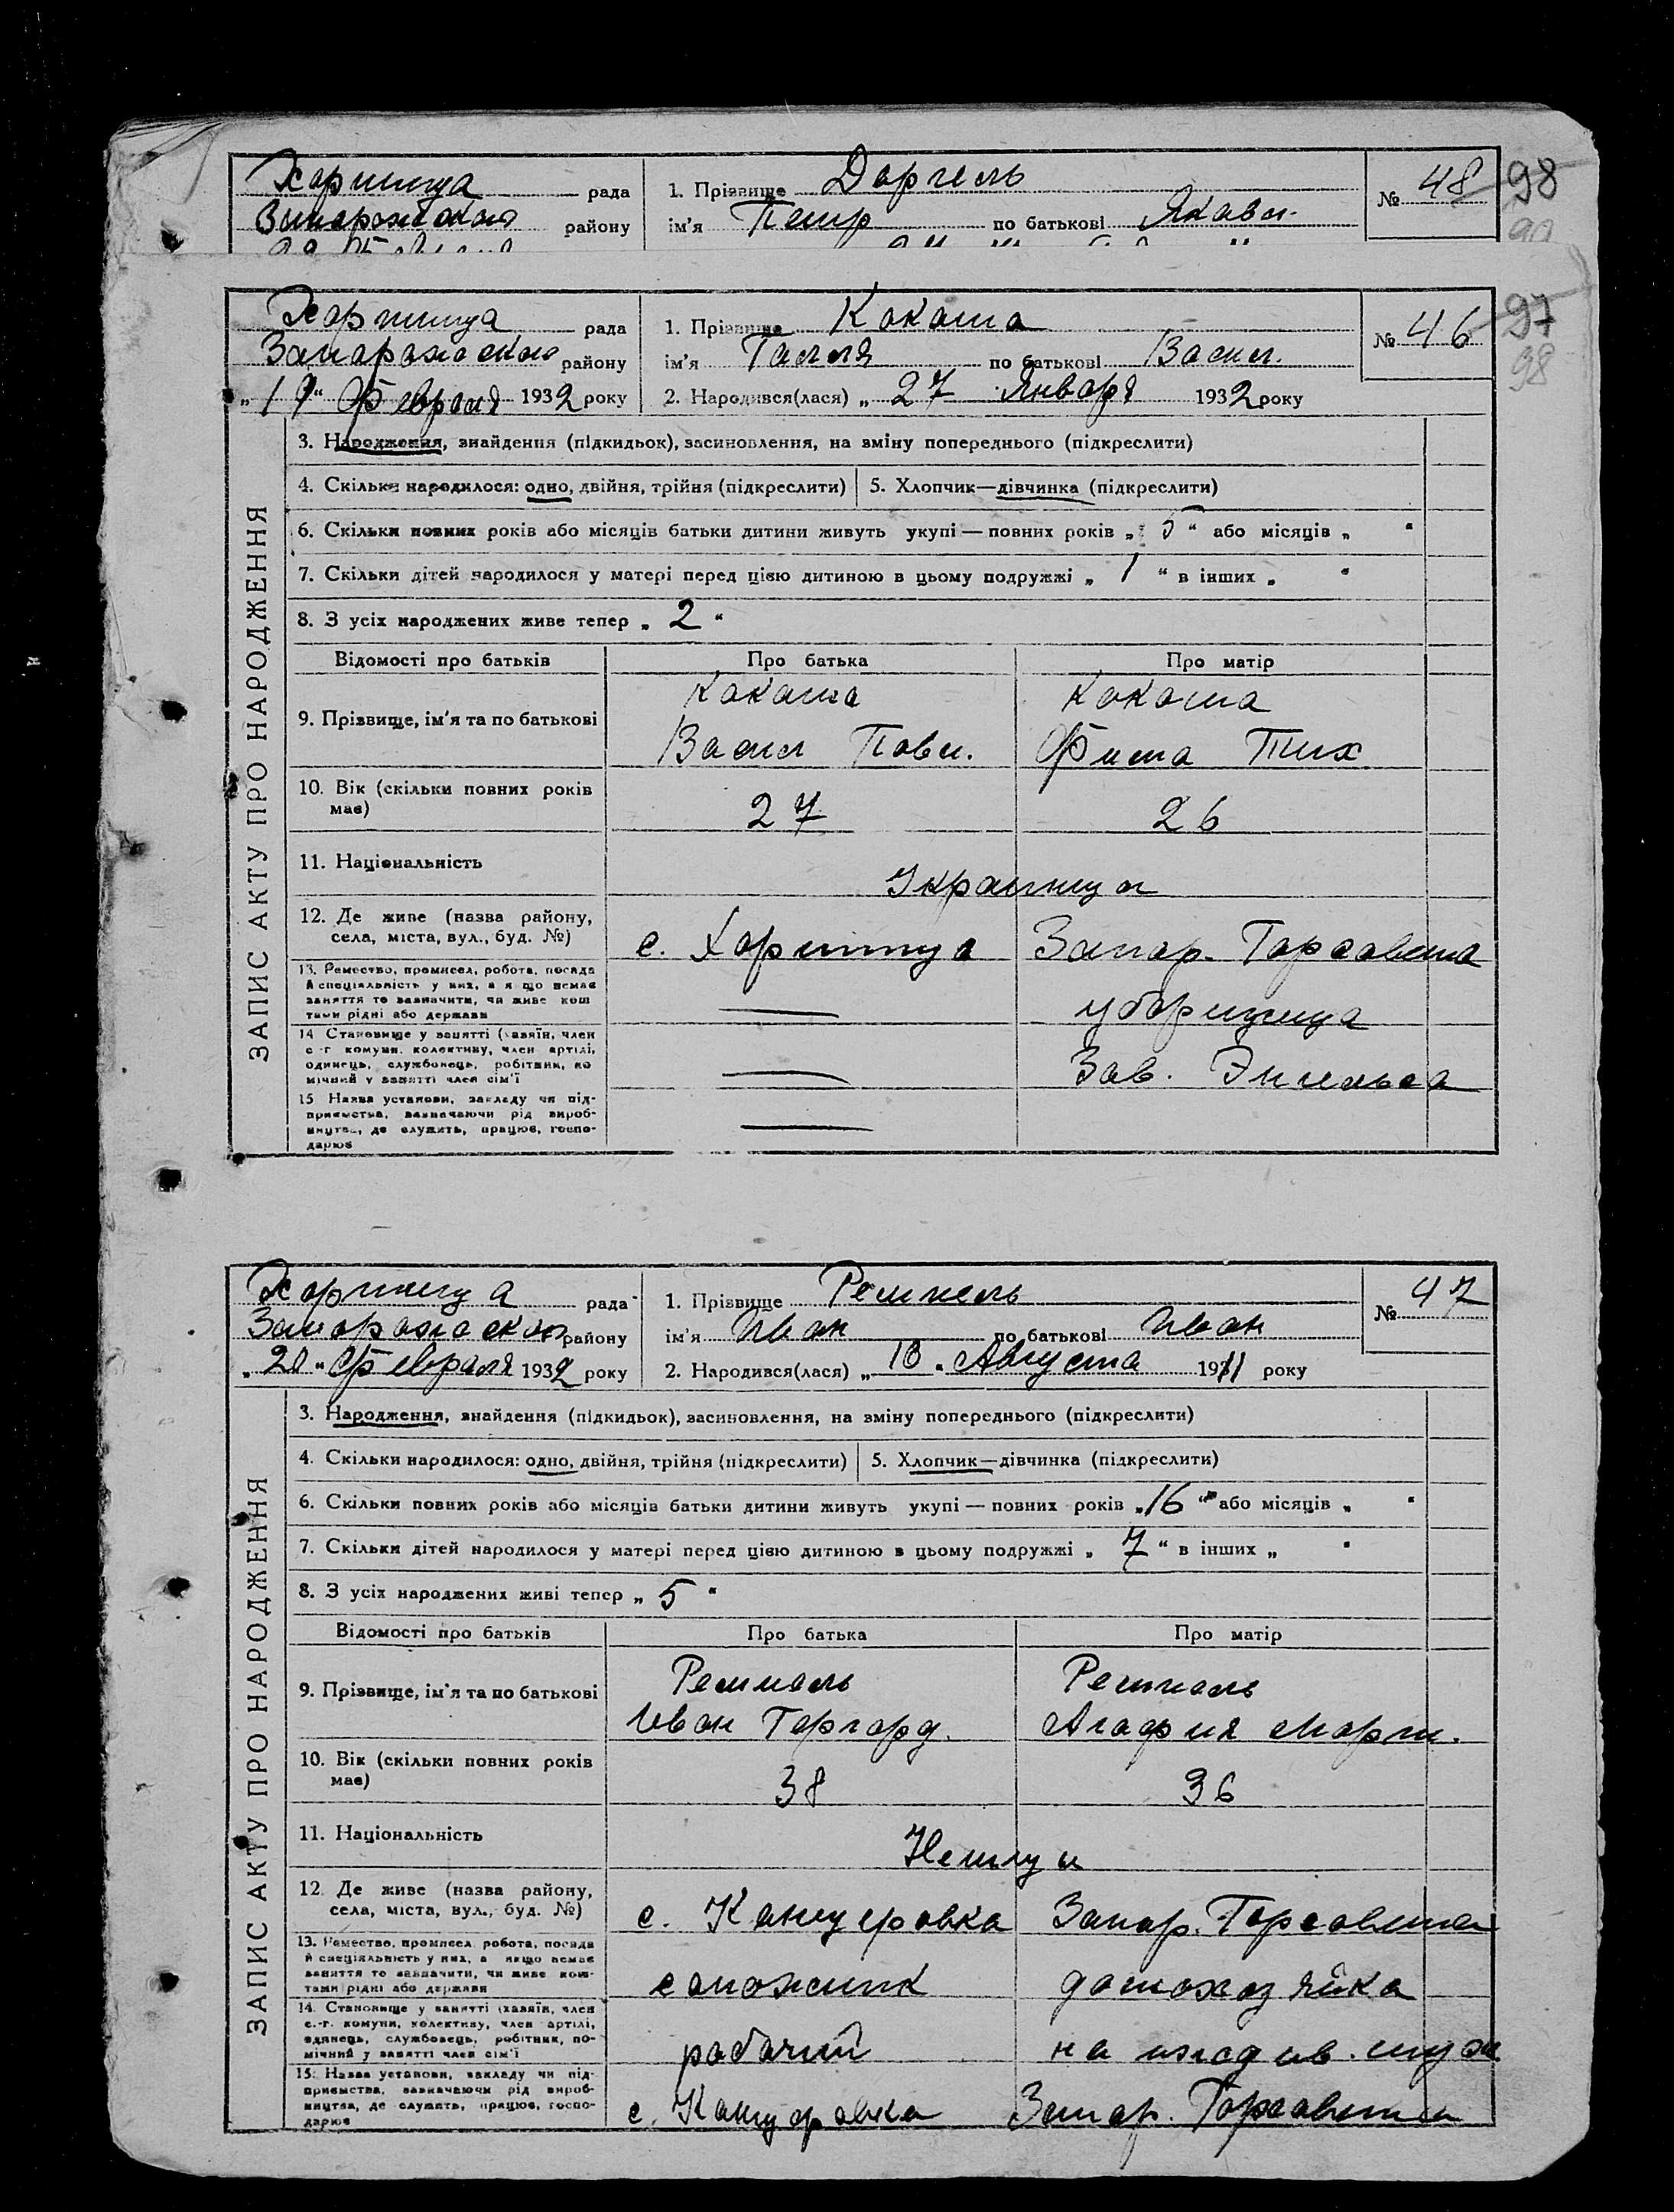 Хортица рада 1. Прізвище Даргель № 48 98
Запорожского району ім'я Петр по батькові Якавл.
Хортица рада 1. Прізвище Какаша № 46 97
Запорожского району ім'я Галля по батькові Васил. 98
„19“ Февраля 1932 року 2. Народився(лася) „27 Января 1932 року
ЗАПИС АКТУ ПРО НАРОДЖЕННЯ
3. Народження, знайдення (підкидьок), засиновлення, на зміну попереднього (підкреслити)
4. Скільки народилося: одно, двійня, трійня (підкреслити) 5. Хлопчик—дівчинка (підкреслити)
6. Скільки повних років або місяців батьки дитини живуть укупі — повних років „5“ або місяців „ “
7. Скільки дітей народилося у матері перед цією дитиною в цьому подружжі „1“ в інших „ “
8. З усіх народжених живе тепер „2“
Відомості про батьків Про батька Про матір
9. Прізвище, ім'я та по батькові Какаша Какаша
Васил Павл. Фима Тих
10. Вік (скільки повних років має) 27 26
11. Національність Украинцы
12. Де живе (назва району, села, міста, вул., буд. №) с. Хортица Запор. Горсовета
13. Ремество, промисел, робота, посада й спеціальність у них, а якщо немає заняття то зазначити, чи живе коштами рідні або держави — уборщица
14. Становище у занятті (хазяїн, член с.-г. комуни, колективу, член артілі, одинець, службовець, робітник, помічний у занятті член сім'ї — Зав. Энгельса
15. Назва установи, закладу чи підприємства, зазначаючи рід виробництва, де служить, працює, господарює —
Хортица рада 1. ПрізвищеРемпель № 47
Запорожского району ім'я Иван по батькові Иван
„20“ Февраля 1932 року 2. Народився(лася) „18“ Августа 1911 року
ЗАПИС АКТУ ПРО НАРОДЖЕННЯ
3. Народження, знайдення (підкидьок), засиновлення, на зміну попереднього (підкреслити)
4. Скільки народилося: одно, двійня, трійня (підкреслити) 5. Хлопчик—дівчинка (підкреслити)
6. Скільки повних років або місяців батьки дитини живуть укупі — повних років „16“ або місяців „ “
7. Скільки дітей народилося у матері перед цією дитиною в цьому подружжі „7“ в інших „ “
8. З усіх народжених живі тепер „5“
Відомості про батьків Про батька Про матір
9. Прізвище, ім'я та по батькові Ремпель Ремпель
Иван Гергард. Агафия Март.
10. Вік (скільки повних років має) 38 36
11. Національність Немцы
12. Де живе (назва району, села, міста, вул., буд. №) с. Канцеровка Запор. Горсовета
13. Ремество, промисел, робота, посада й спеціяльність у них, а якщо немає заняття то зазначити, чи живе коштами рідні або держави сапожник домохозяйка
14. Становище у занятті (хазяїн, член с.-г. комуни, колективу, член артілі, одинець, службовець, робітник, помічний у занятті член сім'ї рабочий на иждив. мужа
15. Назва установи, закладу чи підприємства, зазначаючи рід виробництва, де служить, працює, господарює с. Канцеровка Запор. Горсовета